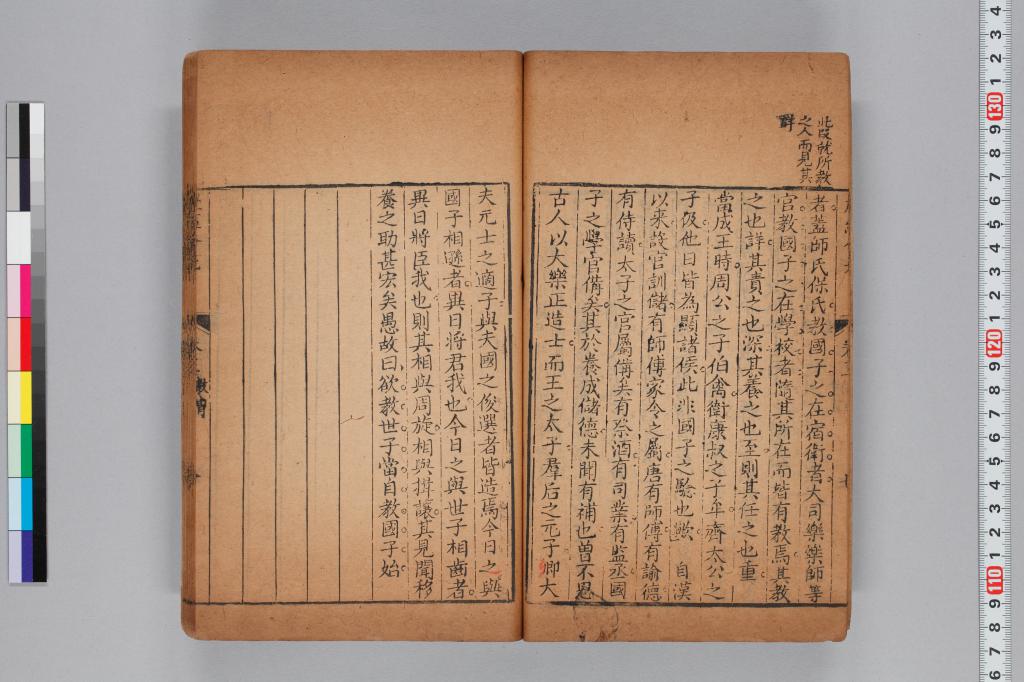 此段就所教
之人而見其
詳
者蓋師氏保氏教國子之在宿衛者大司樂樂師等
官教國子之在學校者隨其所在而皆有教焉其教
之也詳其責之也深其養之也至則其任之也重
當成王時周公之子伯禽衛康叔之子牟齊太公之
子伋他日皆為顯諸侯此非國子之驗也歟 自漢
以来設官訓儲有師傅家令之屬唐有師傅有諭德
有侍讀太子之官屬俻矣有祭酒有司業有監丞國
子之學官俻矣其於養成儲德未聞有補也曽不思
古人以大樂正造士而王之太子羣后之元子卿大
夫元士之適子與夫國之俊選者皆造焉今日之與
國子相遜者異日將君我也今日之與世子相齒者
異日將臣我也則其相與周旋相與揖讓其見聞移
養之助甚宏矣愚故曰欲教世子當自教國子始